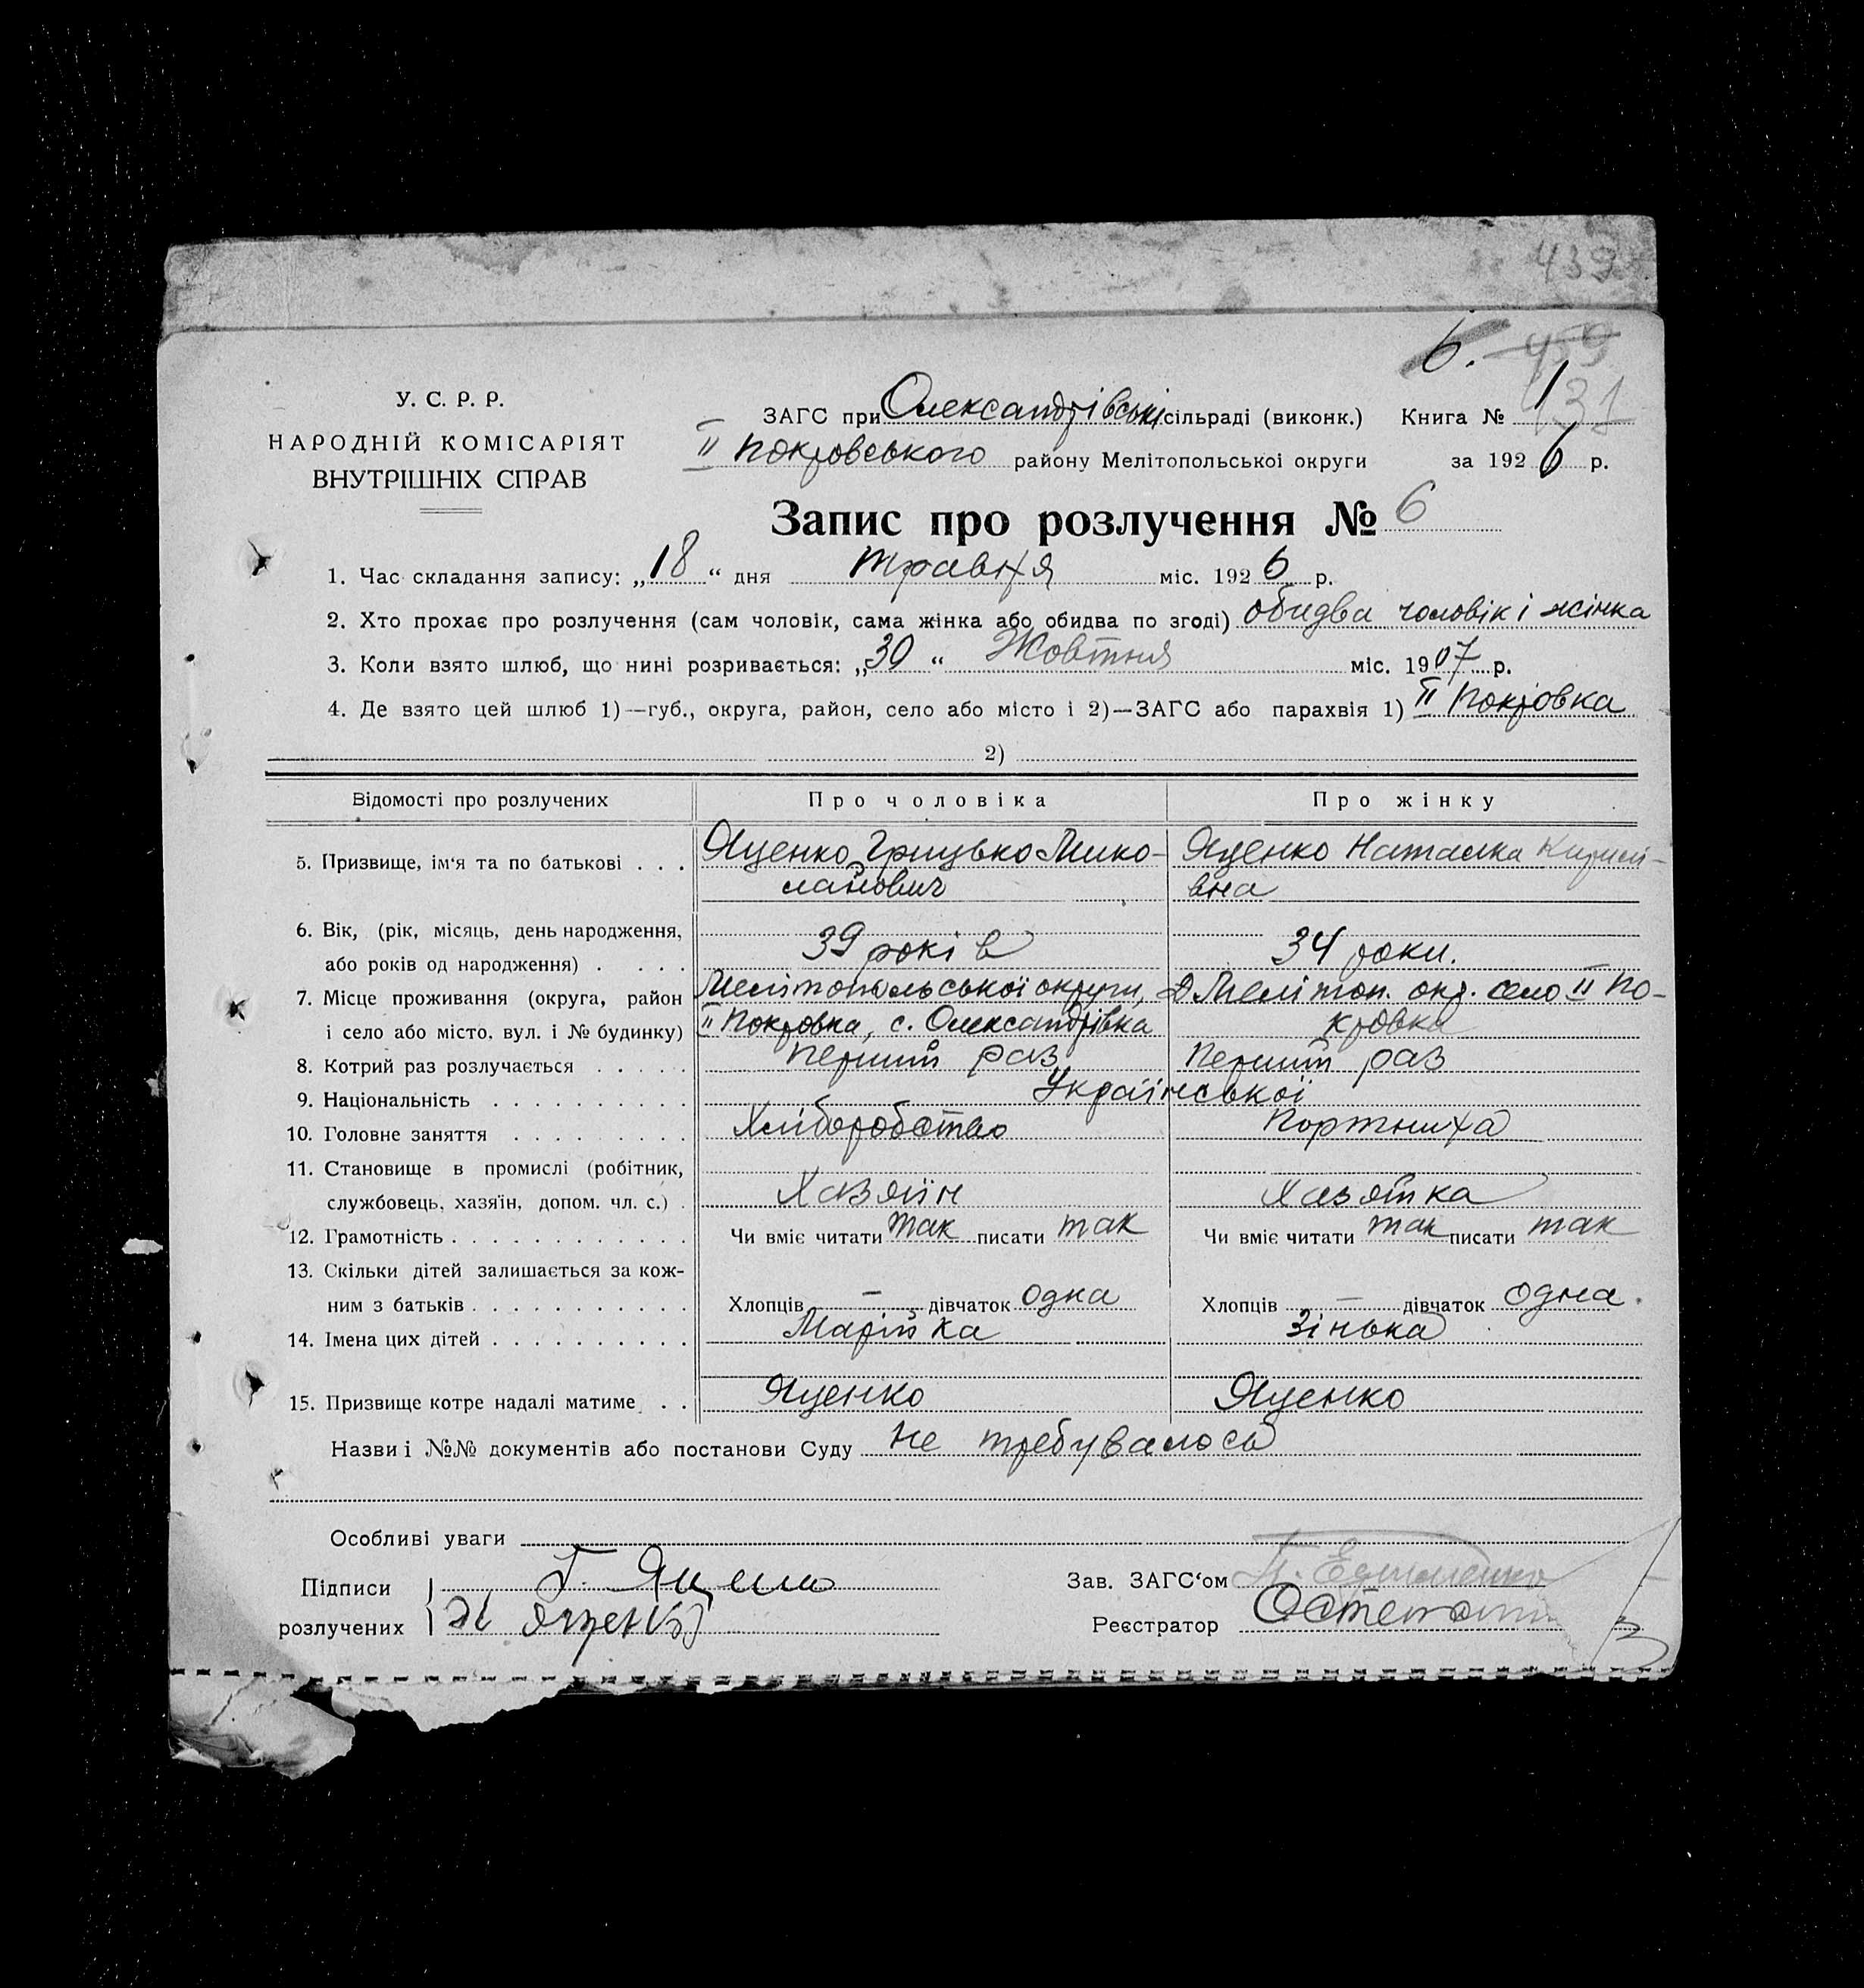 439
6. 459
У. С. Р. Р.
НАРОДНІЙ КОМІСАРІЯТ
ВНУТРІШНІХ СПРАВ
ЗАГС при Олександрівські сільраді (виконк.) Книга № 1 431
II Покровського району Мелітопольської округи за 1926 р.
Запис про розлучення № 6
1. Час складання запису: „18“ дня травня міс. 1926 р.
2. Хто прохає про розлучення (сам чоловік, сама жінка або обидва по згоді) обидва чоловік і жінка
3. Коли взято шлюб, що нині розривається: „30“ Жовтня міс. 1907 р.
4. Де взято цей шлюб 1)—губ., округа, район, село або місто і 2)—ЗАГС або парахвія 1) II Покровка
2)
Відомості про розлучених Про чоловіка Про жінку
5. Призвище, ім'я та по батькові . . . Яценко Грицько Мико- Яценко Наталка Кирилі-
лайович вна
6. Вік, (рік, місяць, день народження,
або років од народження) . . . . 39 років 34 роки.
7. Місце проживання (округа, район Мелітопольської округи, Мелітоп. окр. село II По-
і село або місто, вул. і № будинку) II Покровка, с. Олександрівка кровка
8. Котрий раз розлучається . . . . . Перший раз Перший раз
9. Національність . . . . . . . . . . Української
10. Головне заняття . . . . . . . . . Хліборобство Портниха
11. Становище в промислі (робітник,
службовець, хазяїн, допом. чл. с.) . Хазяїн Хазяйка
12. Грамотність . . . . . . . . . . . . Чи вміє читати так писати так Чи вміє читати так писати так
13. Скільки дітей залишається за кож-
ним з батьків . . . . . . . . . . . Хлопців — дівчаток одна Хлопців — дівчаток одна.
14. Імена цих дітей . . . . . . . . . . Марійка Зінька
15. Призвище котре надалі матиме . . Яценко Яценко
Назви і №№ документів або постанови Суду не требувалось
Особливі уваги
Підписи Г. Яценко Зав. ЗАГС'ом
розлучених Н Яценко Реєстратор